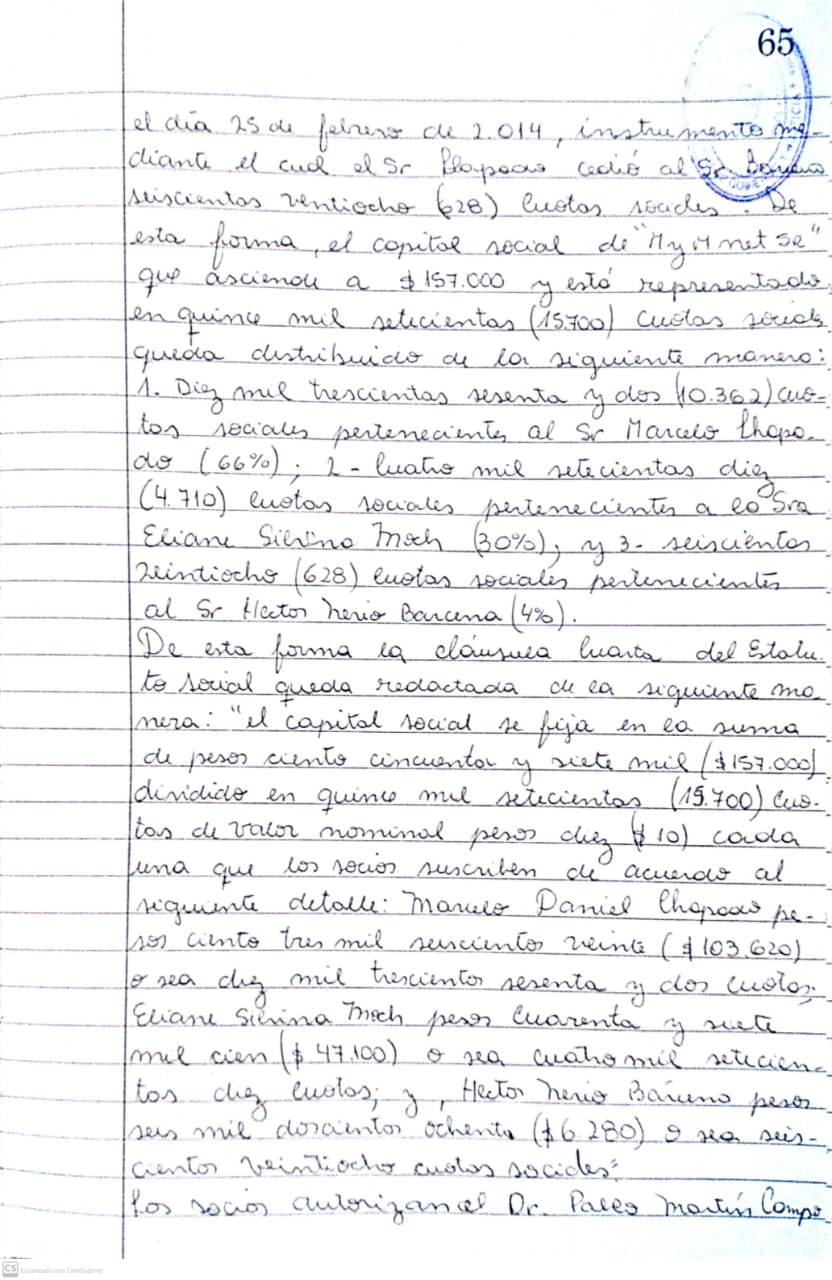 65
el día 25 de febrero de 2.014, instrumento me-
diante el cual el Sr Chapado cedió al Sr Barcena
seiscientas ventiocho (628) Cuotas sociales. De
esta forma, el capital social de "M y M net SRL"
que asciende a $157.000 y está representado
en quince mil setecientas (15.700) Cuotas sociales
queda distribuido de la siguiente manera:
1. Diez mil trescientas sesenta y dos (10.362) cuo-
tas sociales pertenecientes al Sr Marcelo Chapa-
do (66%); 2- Cuatro mil setecientas diez
(4.710) cuotas sociales pertenecientes a la Sra
Eliane Silvina Moch (30%); y 3- seiscientas
veintiocho (628) cuotas sociales pertenecientes
al Sr Hector Nerio Barcena (4%).
De esta forma la cláusula cuarta del Estatu-
to social queda redactada de la siguiente ma-
nera: "el capital social se fija en la suma
de pesos ciento cincuenta y siete mil ($157.000)
dividido en quince mil setecientas (15.700) Cuo-
tas de valor nominal pesos diez ($10) cada
una que los socios suscriben de acuerdo al
siguiente detalle: Marcelo Daniel Chapado pe-
sos ciento tres mil seiscientos veinte ($103.620)
o sea diez mil trescientos sesenta y dos cuotas;
Eliane Silvina Moch pesos Cuarenta y siete
mil cien ($47.100) o sea cuatro mil setecien-
tas diez cuotas; y, Hector Nerio Barcena pesos
seis mil doscientos ochenta ($6.280) o sea seis-
cientos veintiocho cuotas sociales"
Los socios autorizan al Dr. Pablo Martín Campo
CS Escaneado con CamScanner